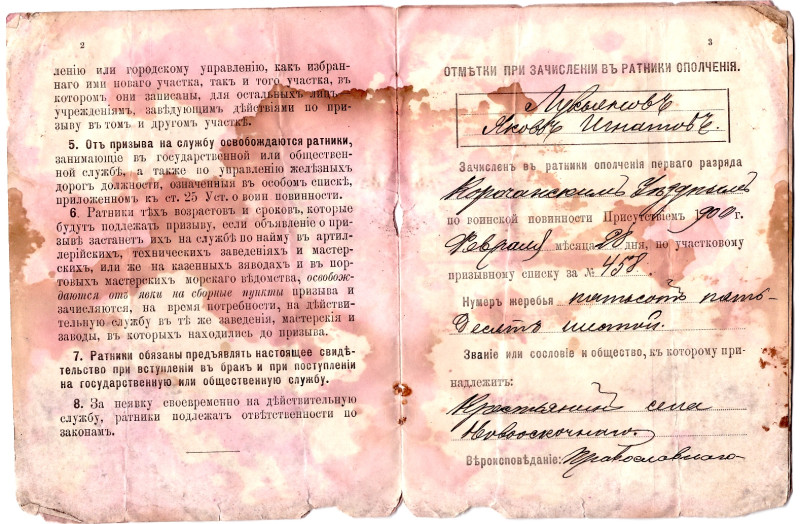 2
ленію или городскому управленію, какъ избран-
наго ими новаго участка, такъ и того участка, въ
которомъ они записаны, для остальныхъ лицъ
учрежденіямъ, завѣдующимъ дѣйствіями по при-
зыву въ томъ и другомъ участкѣ.
5. Отъ призыва на службу освобождаются ратники,
занимающіе въ государственной или обществен-
ной службѣ, а также по управленію желѣзныхъ
дорогъ должности, означенныя въ особомъ спискѣ,
приложенномъ къ ст. 25 Уст. о воин. повинности.
6. Ратники тѣхъ возрастовъ и сроковъ, которые
будутъ подлежать призыву, если объявленіе о при-
зывѣ застанетъ ихъ на службѣ по найму въ артил-
лерійскихъ, техническихъ заведеніяхъ и мастер-
скихъ, или же на казенныхъ заводахъ и въ пор-
товыхъ мастерскихъ морскаго вѣдомства, освобож-
даются отъ явки на сборные пункты призыва и
зачисляются, на время потребности, на дѣйстви-
тельную службу въ тѣ же заведенія, мастерскія и
заводы, въ которыхъ находились до призыва.
7. Ратники обязаны предъявлять настоящее свидѣ-
тельство при вступленіи въ бракъ и при поступленіи
на государственную или общественную службу.
8. За неявку своевременно на дѣйствительную
службу, ратники подлежатъ отвѣтственности по
законамъ.
3
ОТМѢТКИ ПРИ ЗАЧИСЛЕНІИ ВЪ РАТНИКИ ОПОЛЧЕНІЯ.
Лукьяновъ
Яковъ Игнатовъ.
Зачисленъ въ ратники ополченія перваго разряда
Корочанскимъ Уѣзднымъ
по воинской повинности Присутствіемъ 1900 г.
Февраля мѣсяца 28 дня, по участковому
призывному списку за № 458.
Нумеръ жеребья пятьсотъ пять-
десятъ шестой.
Званіе или сословіе и общество, къ которому при-
надлежитъ:
Крестьянинъ села
Новооскочнаго.
Вѣроисповѣданіе: Православнаго